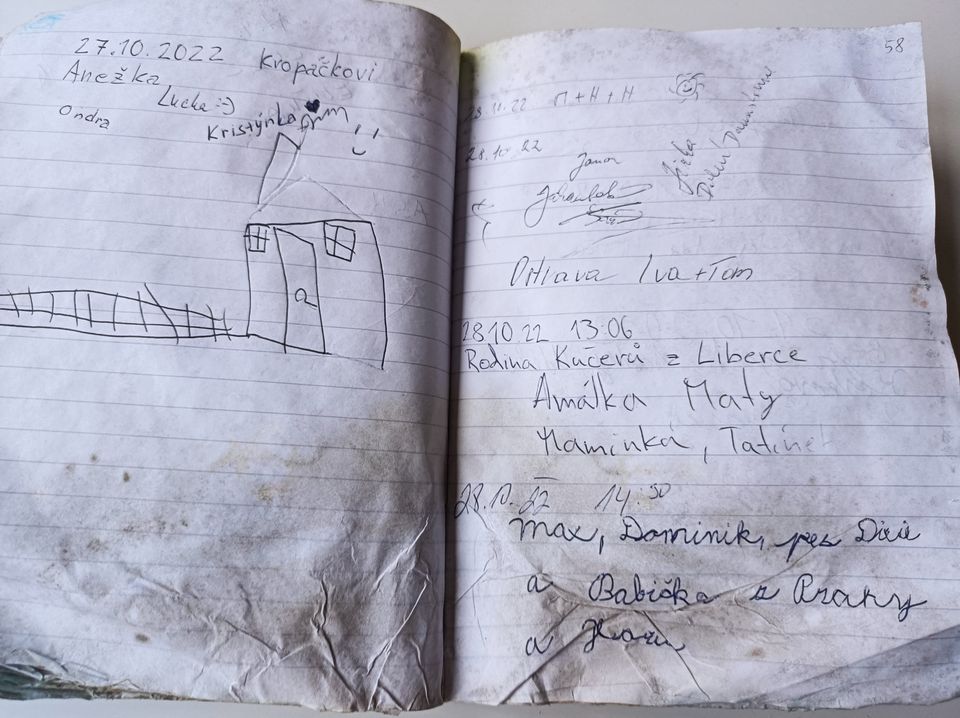 27.10.2022 Kropáčkovi
Anežka
Lucka :-)
Ondra
Kristýnka
58
28.10.22 M+H+H
28.10.22
Jana
Jirka
Iva + Tom
28.10.22 13:06
Rodina Kučerů z Liberce
Amálka Maty
Maminka, Tatíne
28.10.22 14:50
Max, Dominik, pes
a Babička z Prahy
a